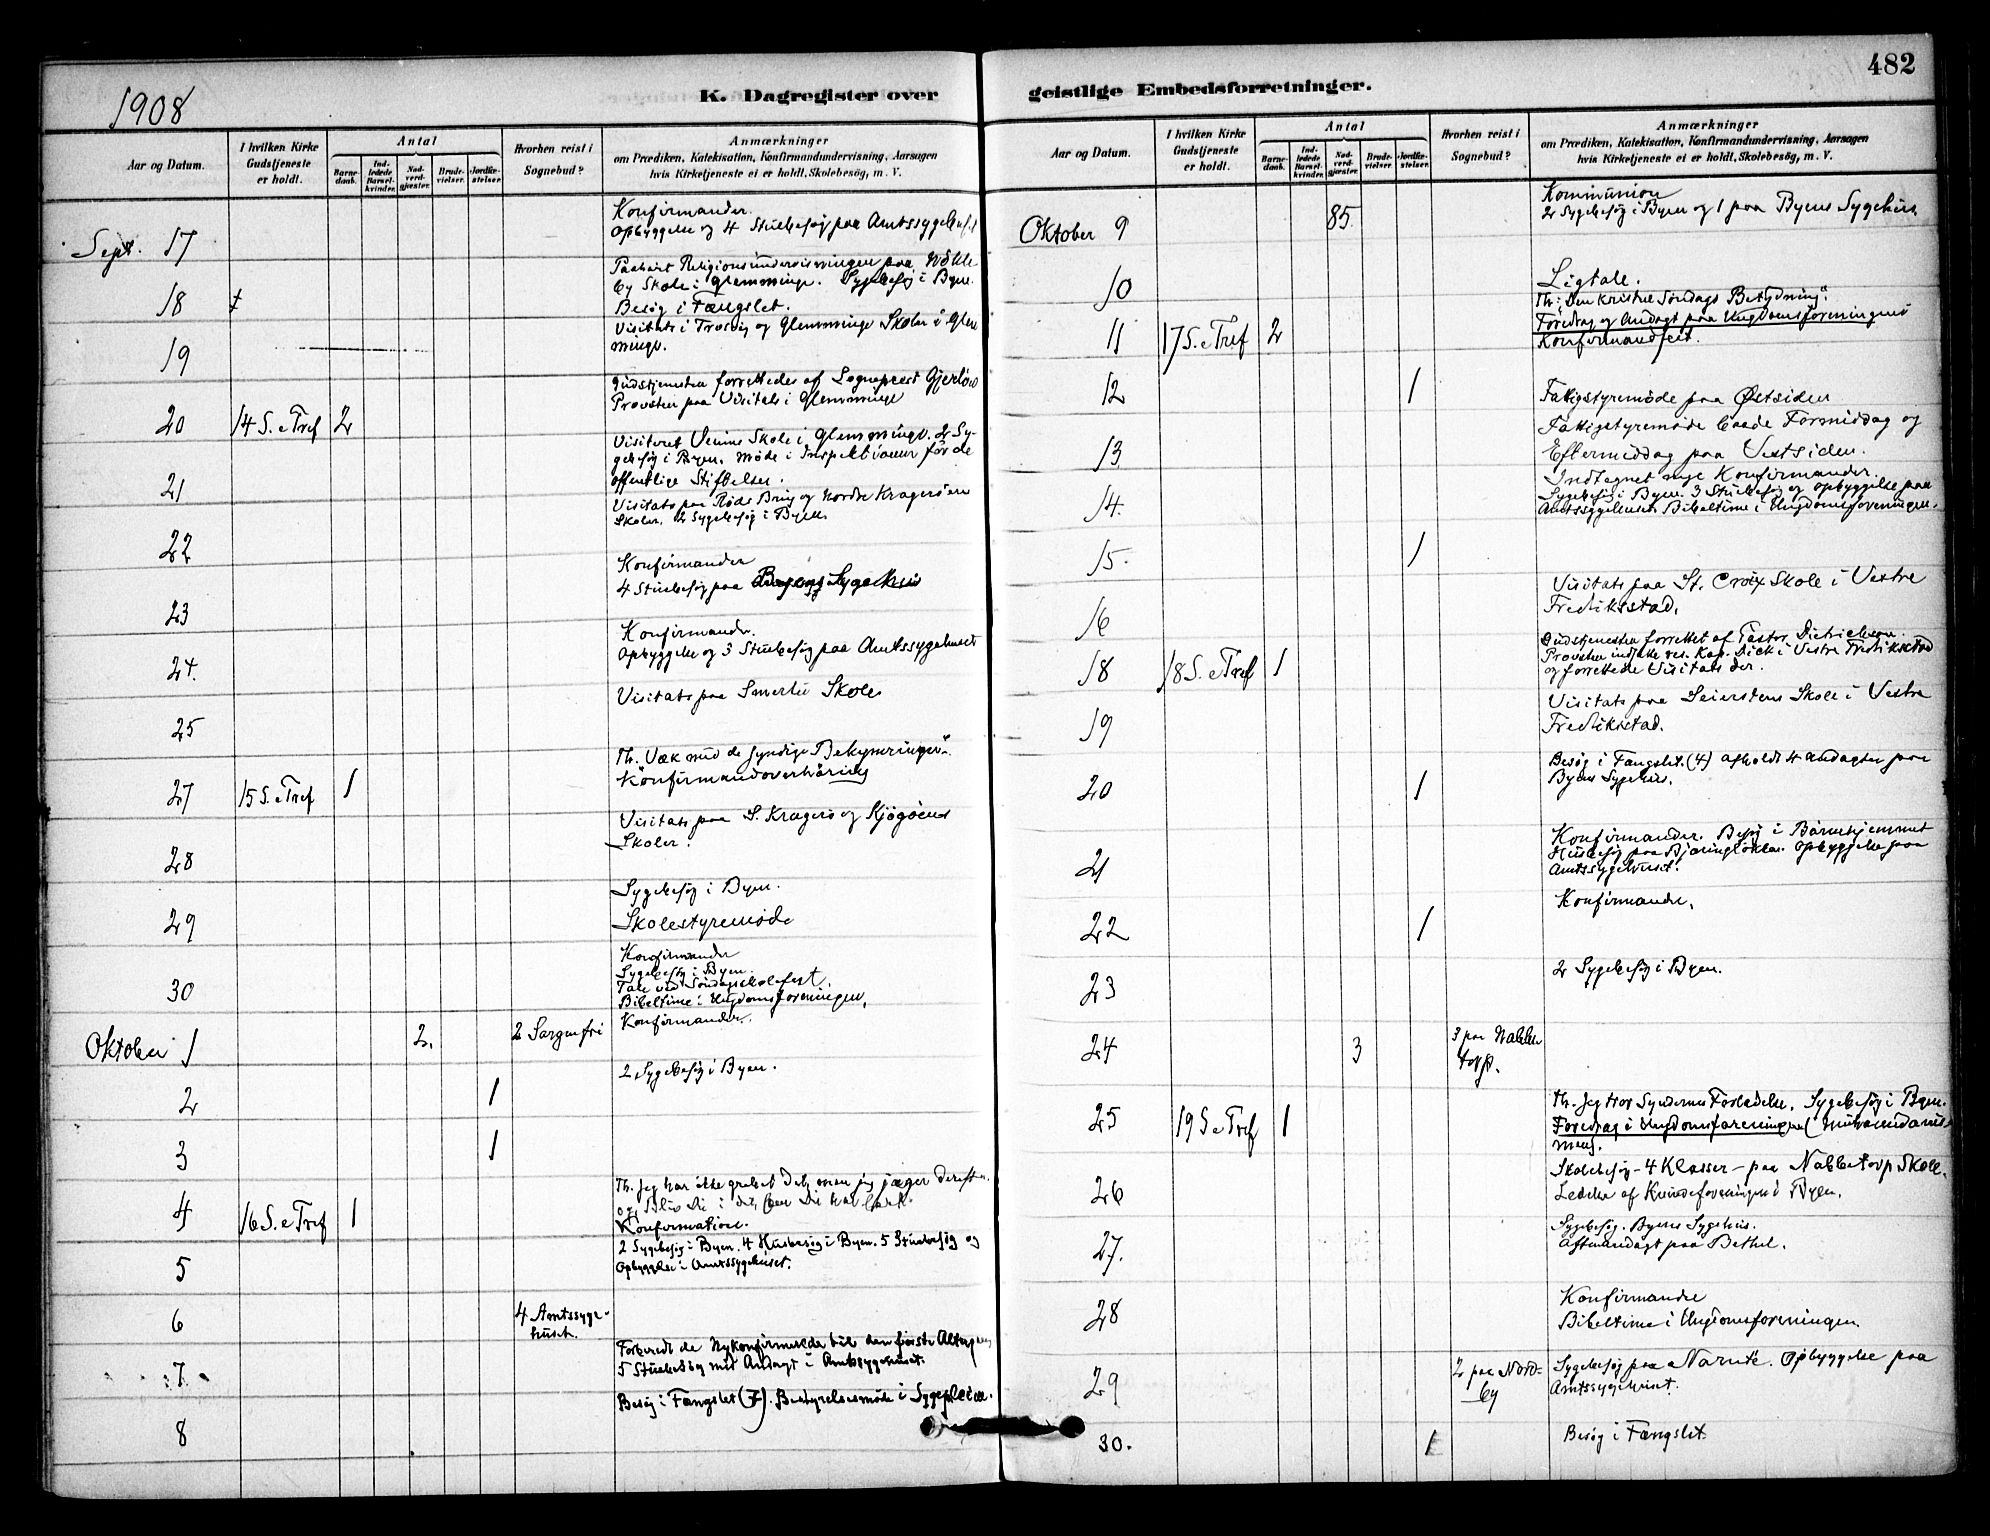 482
1908
K. Dagregister over geistlige Embedsforretninger.
Aar og Datum.
I hvilken Kirke Gudstjeneste er holdt.
Antal
Barnedaab.
Indledede Barselkvinder.
Nadverdgjæster.
Brudevielser.
Jordfæstelser.
Hvorhen reist i Sognebud?
Anmærkninger
om Prædiken, Katekisation, Konfirmandundervisning, Aarsagen
hvis Kirketjeneste ei er holdt, Skolebesög, m. V.
Sept. 17
Konfirmander.
Opbyggelse og 4 Stuebesøg paa Amtssygehuset
18
Religionsundervisningen paa
by Skole i Glemminge. Sygebesøg i Byen.
Besøg i Fængslet.
19
Visitats i Trosvig og Glemminge Skoler i Glem
minge.
20 14 S. e Tref 2
Gudstjenesten forrettedes af Sogneprest Gjerløw
Provsten paa Visitats i Glemminge
21
Visiteret Skole i Glemminge. 2 Sy-
gebesøg i Byen. Møde i Inspektionen for de
offentlige Stiftelser.
22
Visitats paa Røds Brug og Nordre Kragerøen
Skoler. 2 Sygebesøg i Byen.
23
Konfirmander
4 Stuebesøg paa Byens Sygehus
24.
Konfirmander.
Opbyggelse og 3 Stuebesøg paa Amtssygehuset
25
Visitats paa Smertu Skole
27 15 S. e Tref 1
Th. Væk med de syndige Bekymringer".
Konfirmandoverhøring
28
Visitats paa S. Kragerø og Kjøgøens
Skoler.
29
Sygebesøg i Byen.
Skolestyremøde
30
Konfirmander
Sygebesøg i Byen.
Tale ved Søndagsskolefest.
Bibeltime i Ungdomsforeningen.
Oktober 1 2. 2 Sorgenfri
Konfirmander.
2 1
2 Sygebesøg i Byen.
3 1
4 16 S. e Tref 1
Th. Jeg har ikke grebet det, men jeg jager derefter
og Bliv du i det, som du har lært.
Konfirmation.
5
2 Sygebesøg i Byen. 4 Husbesøg i Byen. 5 Stuebesøg og
Opbyggelse i Amtssygehuset.
6 4 Amtssyge-
huset.
7
Forberedt de Nykonfirmerede til den første Altergang
5 Stuebesøg med Andagt i Amtssygehuset.
8
Besøg i Fængslet (7). Bestyrelsesmøde i Sygepleien.
Aar og Datum.
I hvilken Kirke Gudstjeneste er holdt.
Antal
Barnedaab.
Indledede Barselkvinder.
Nadverdgjæster.
Brudevielser.
Jordfæstelser.
Hvorhen reist i Sognebud?
Anmærkninger
om Prædiken, Katekisation, Konfirmandundervisning, Aarsagen
hvis Kirketjeneste ei er holdt, Skolebesög, m. V.
Oktober 9 85.
Kommunion
2 Sygebesøg i Byen og 1 paa Byens Sygehus
10
Ligtale.
11 17 S. e Tref 2
Th: "Den kristne Søndags Betydning".
Foredrag og Andagt paa Ungdomsforeningens
Konfirmandfest.
12 1
Fatigstyremøde paa Østsiden
13
Fattigstyremøde baade Formiddag og
Eftermiddag paa Vestsiden.
14.
Indtegnet nye Konfirmander.
Sygebesøg i Byen. 3 Stuebesøg og Opbyggelse paa
Amtssygehuset. Bibeltime i Ungdomsforeningen.
15. 1
16
Visitats paa St. Croix Skole i Vestre
Fredrikstad.
18 18 S. e Tref 1
Gudstjenesten forrettet af Pastor Dietrichson.
Provsten indsatte res. Kap. Dick i Vestre Fredrikstad
og forrettede Visitats der.
19
Visitats paa Seierstens Skole i Vestre
Fredrikstad.
20 1
Besøg i Fængslet. (4) afholdt 4 Andagter paa
Byens Sygehus.
21
Konfirmander. Besøg i Barnehjemmet
Husbesøg paa Bjøringløkken. Opbyggelse paa
Amtssygehuset.
22 1
Konfirmander.
23
2 Sygebesøg i Byen.
24 3 3 paa Nabbe
torp.
25 19 S e Tref 1
Th. Jeg tror Syndernes Forladelse. Sygebesøg i Byen.
Foredrag i Ungdomsforeningen (Muhamedanis-
men).
26
Skolebesøg - 4 Klasser - paa Nabbetorp Skole.
Ledelse af Kvindeforeningen i Byen.
27.
Sygebesøg. Byens Sygehus.
Aftenandagt paa Bethel.
28
Konfirmander
Bibeltime i Ungdomsforeningen.
29 2 paa Nord-
by
Sygebesøg paa Narnte. Opbyggelse paa
Amtssygehuset.
30. 1
Besøg i Fængslet.